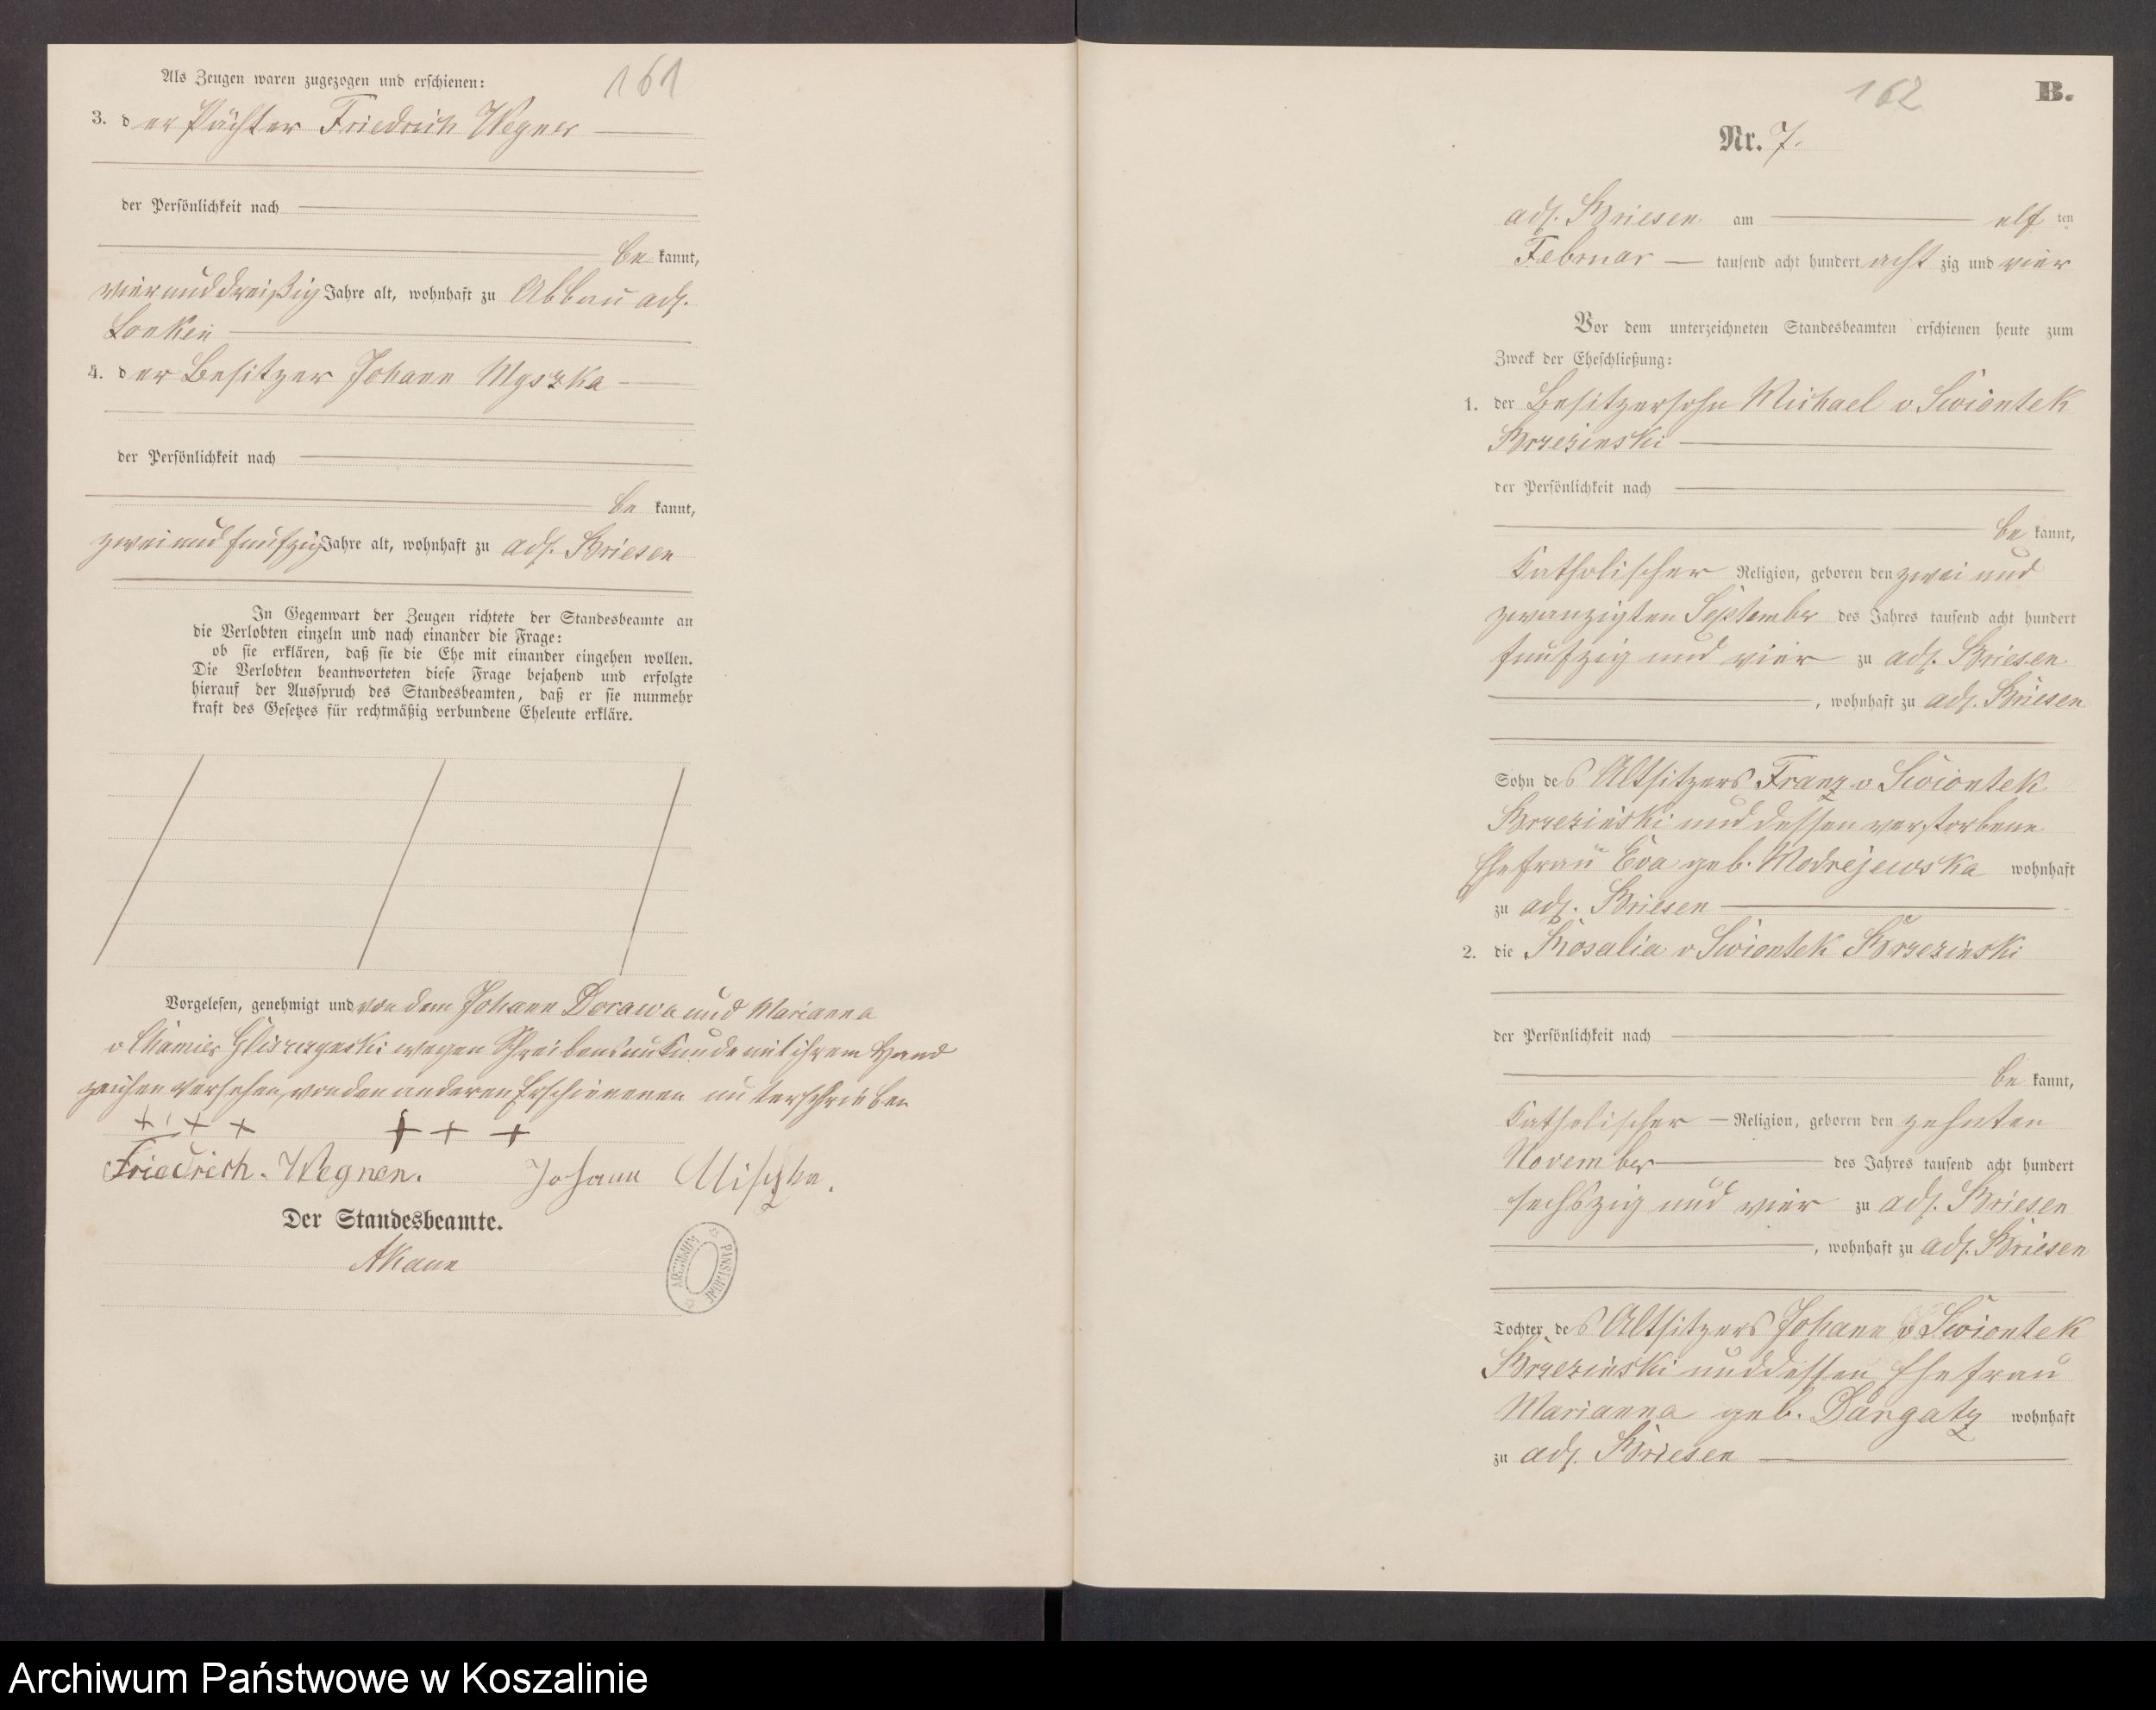 161
Als Zeugen waren zugezogen und erschienen:
3. der Pächter Friedrich Wegner
der Persönlichkeit nach
be kannt,
vierunddreißig Jahre alt, wohnhaft zu Abbau adl.
Lonken
4. der Besitzer Johann Myszka
der Persönlichkeit nach
be kannt,
zweiundfunfzig Jahre alt, wohnhaft zu adl. Briesen
In Gegenwart der Zeugen richtete der Standesbeamte an
die Verlobten einzeln und nach einander die Frage:
ob sie erklären, daß sie die Ehe mit einander eingehen wollen.
Die Verlobten beantworteten diese Frage bejahend und erfolgte
hierauf der Ausspruch des Standesbeamten, daß er sie nunmehr
kraft des Gesetzes für rechtmäßig verbundene Eheleute erkläre.
Vorgelesen, genehmigt und von dem Johann Dorawa und Marianna
v Chamier Gliszczynski wegen Schreibensunkunde mit ihrem Hand
zeichen versehen, von den anderen Erschienenen unterschrieben
+ + + + + +
Friedrich. Wegner. Johann Mischke.
Der Standesbeamte.
ARCHIWUM PAŃSTWOWE
162
B.
Nr. 7.
adl. Briesen am elf ten
Februar tausend acht hundert acht zig und vier
Vor dem unterzeichneten Standesbeamten erschienen heute zum
Zweck der Eheschließung:
1. der Besitzersohn Michael v Swiontek
Brzezinski
der Persönlichkeit nach
be kannt,
Katholischer Religion, geboren den zwei und
zwanzigten September des Jahres tausend acht hundert
funfzig und vier zu adl. Briesen
, wohnhaft zu adl. Briesen
Sohn des Altsitzers Franz v Swiontek
Brzezinski und dessen verstorbene
Ehefrau Eva geb. Modrejewska wohnhaft
zu adl. Briesen
2. die Rosalia v Swiontek Brzezinski
der Persönlichkeit nach
be kannt,
Katholischer Religion, geboren den zehnten
November des Jahres tausend acht hundert
sechszig und vier zu adl. Briesen
, wohnhaft zu adl. Briesen
Tochter des Altsitzers Johann v Swiontek
Brzezinski und dessen Ehefrau
Marianna geb. Dargatz wohnhaft
zu adl. Briesen
Archiwum Państwowe w Koszalinie